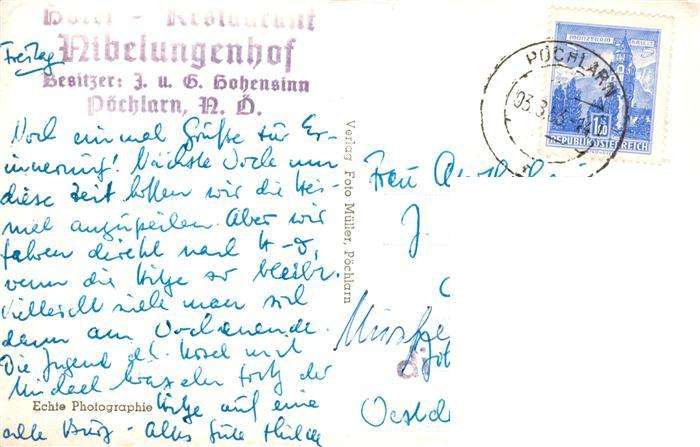 Hotel - Restaurant
Nibelungenhof
Besitzer: J. u. G. Hohensinn
Pöchlarn, N. Ö.
Freitag
Noch einmal Grüße zur Er-
innerung! Nächste Woche um
diese Zeit hoffen wir die Hei-
mat anzupeilen. Aber wir
fahren direkt nach
wenn die Hitze so bleibt.
Vielleicht sieht man sich
dann am Wochenende.
Die Jugend mit
trotz der
Hitze auf eine
alte Burg - Alles Gute Hilde
Echte Photographie
Verlag Foto Müller, Pöchlarn
MÜNZTURM HALL I. T.
1.80
REPUBLIK ÖSTERREICH
PÖCHLARN
Frau
J.